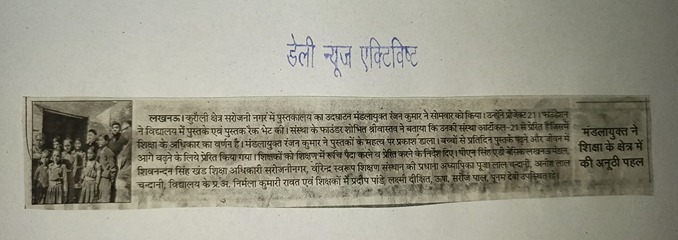 डेली न्यूज एक्टिविष्ट
लखनऊ। कुरौली क्षेत्र सरोजनी नगर में पुस्तकालय का उदघाटन मंडलायुक्त रंजन कुमार ने सोमवार को किया। उन्होंने प्रोजेक्ट 21। फाउंडेशन
ने विद्यालय में पुस्तकें एवं पुस्तक रैक भेट की। संस्था के फाउंडर शोभित श्रीवास्तव ने बताया कि उनकी संस्था आर्टिकल-21 से प्रेरित है जिसमें
शिक्षा के अधिकार का वर्णन है। मंडलायुक्त रंजन कुमार ने पुस्तकों के महत्व पर प्रकाश डाला। बच्चों से प्रतिदिन पुस्तकें पढ़ने और जीवन में
आगे बढ़ने के लिये प्रेरित किया गया। शिक्षकों को शिक्षण में रूचि पैदा करने व प्रेरित करने के निर्देश दिए। पीएन सिंह एडी बेसिक लखनऊ मंडल,
शिवनन्दन सिंह खंड शिक्षा अधिकारी सरोजनीनगर, वीरेन्द्र स्वरूप शिक्षण संस्थान की प्रधाना अध्यापिका पूजा लाल चन्दानी, अनीश लाल
चन्दानी, विद्यालय के प्र.अ. निर्मला कुमारी रावत एवं शिक्षकों में प्रदीप पांडे, लक्ष्मी दीक्षित, ऊषा, सरोज पाल, पूनम देवी उपस्थित रहे।
मंडलायुक्त ने
शिक्षा के क्षेत्र में
की अनूठी पहल